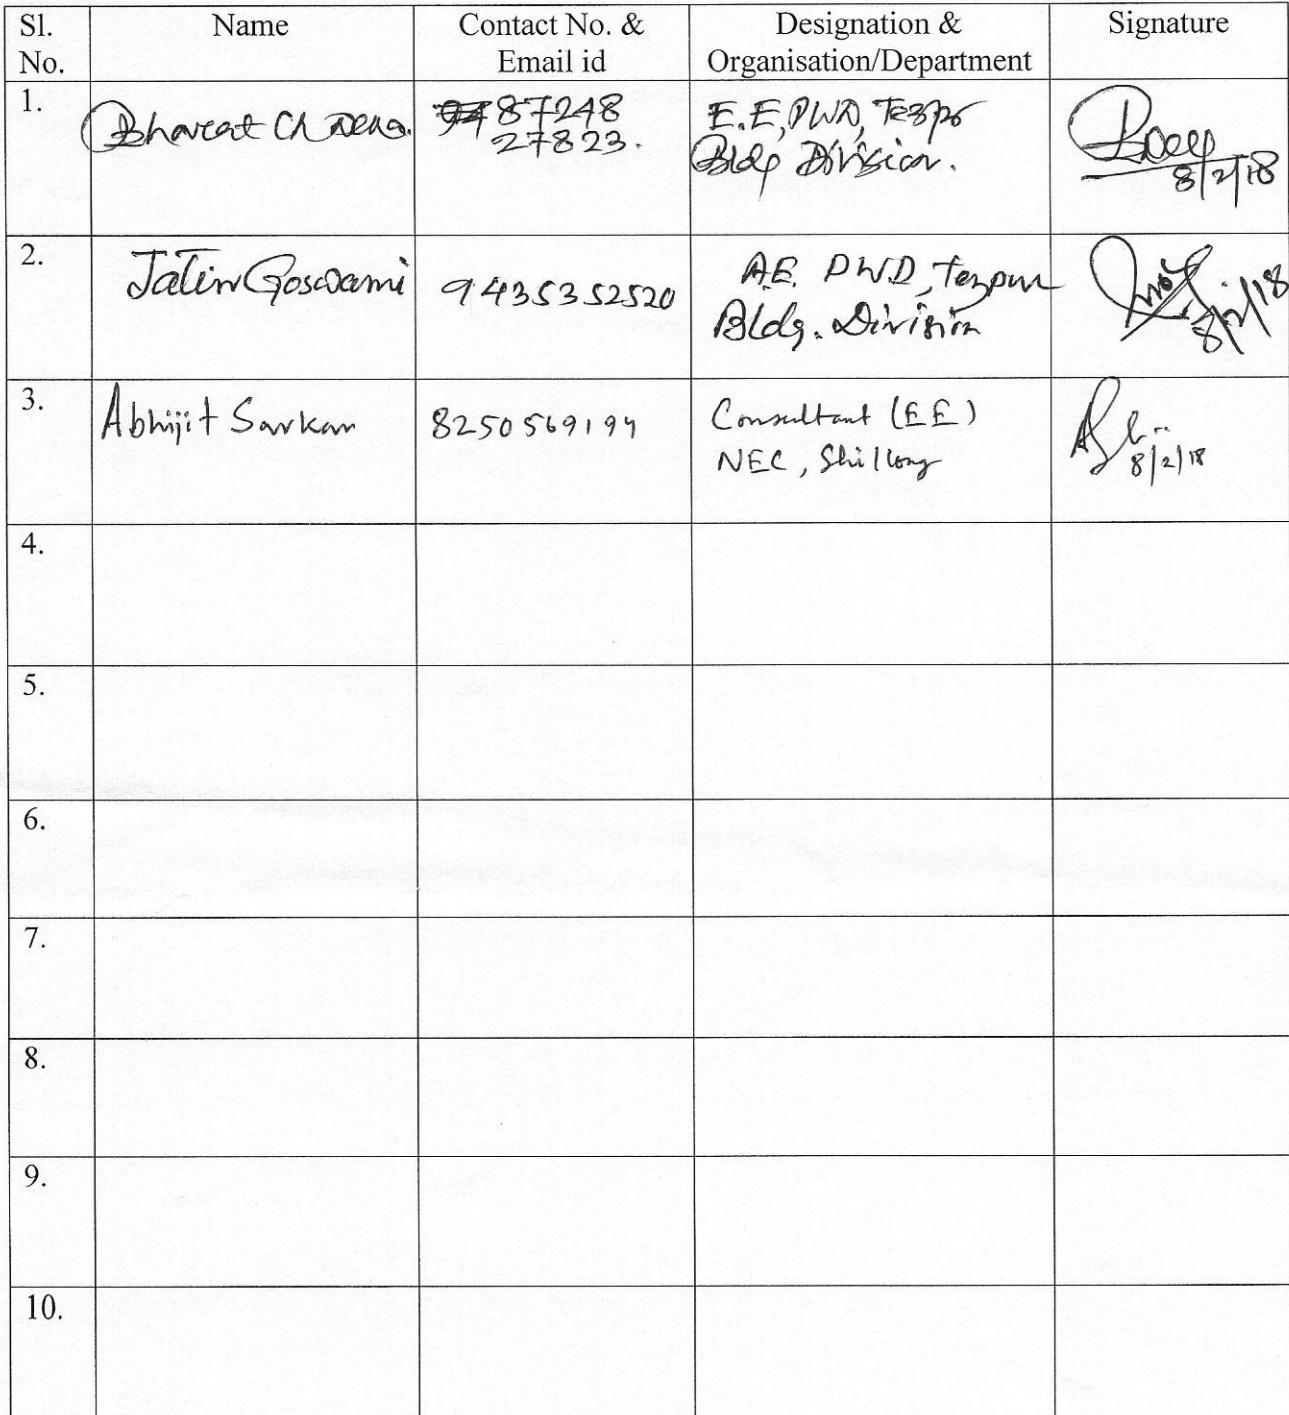 Sl. No.
Name
Contact No. &
Email id
Designation &
Organisation/Department
Signature
1.
Bharat Ch
87248
27823.
E.E, PWD, Tezpr
Bldg Division.
8/2/18
2.
Jatin Goswami
9435352520
A.E. P.W.D, Tezpur
Bldg. Division
8/2/18
3.
Abhijit Sarkar
8250569194
Consultant (EE)
NEC, Shillong
8/2/18
4.
5.
6.
7.
8.
9.
10.